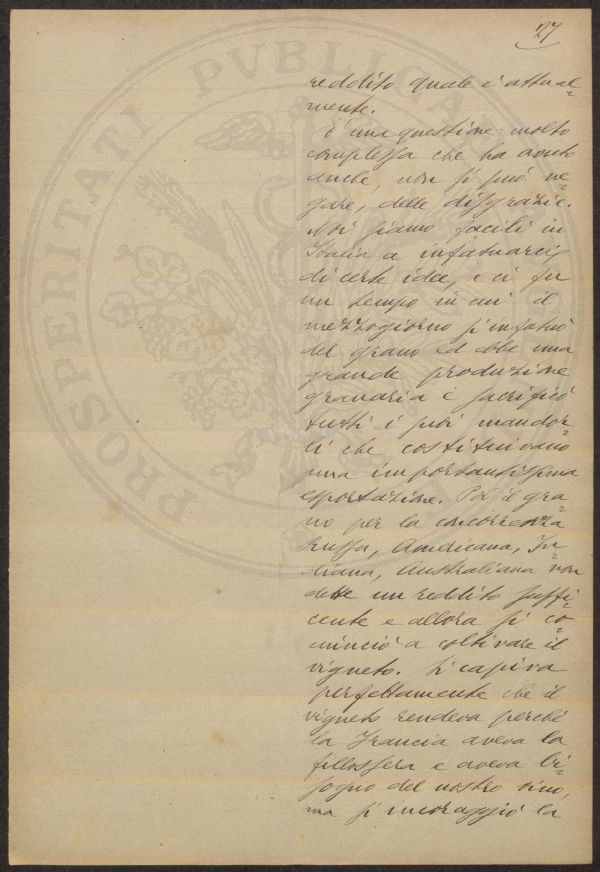 27
PROSPERITATI PVBLICAE
reddito quale è attual=
mente.
È una questione molto
complessa che ha avuto
anche, non si può ne=
gare, delle disgrazie.
Noi siamo facili in
Italia a infatuarci
di certe idee, e ci fu
un tempo in cui il
mezzogiorno s'infatuò
del grano ed ebbe una
grande produzione
granaria e sacrificò
tutti i suoi mandor=
li che costituivano
una importantissima
esportazione. Poi il gra=
no per la concorrenza
Russa, Americana, In=
diana, Australiana non
dette un reddito suffi=
cente e allora si co=
minciò a coltivare il
vigneto. Si capiva
perfettamente che il
vigneto rendeva perché
la Francia aveva la
fillossera e aveva bi=
sogno del nostro vino,
ma si incoraggiò la